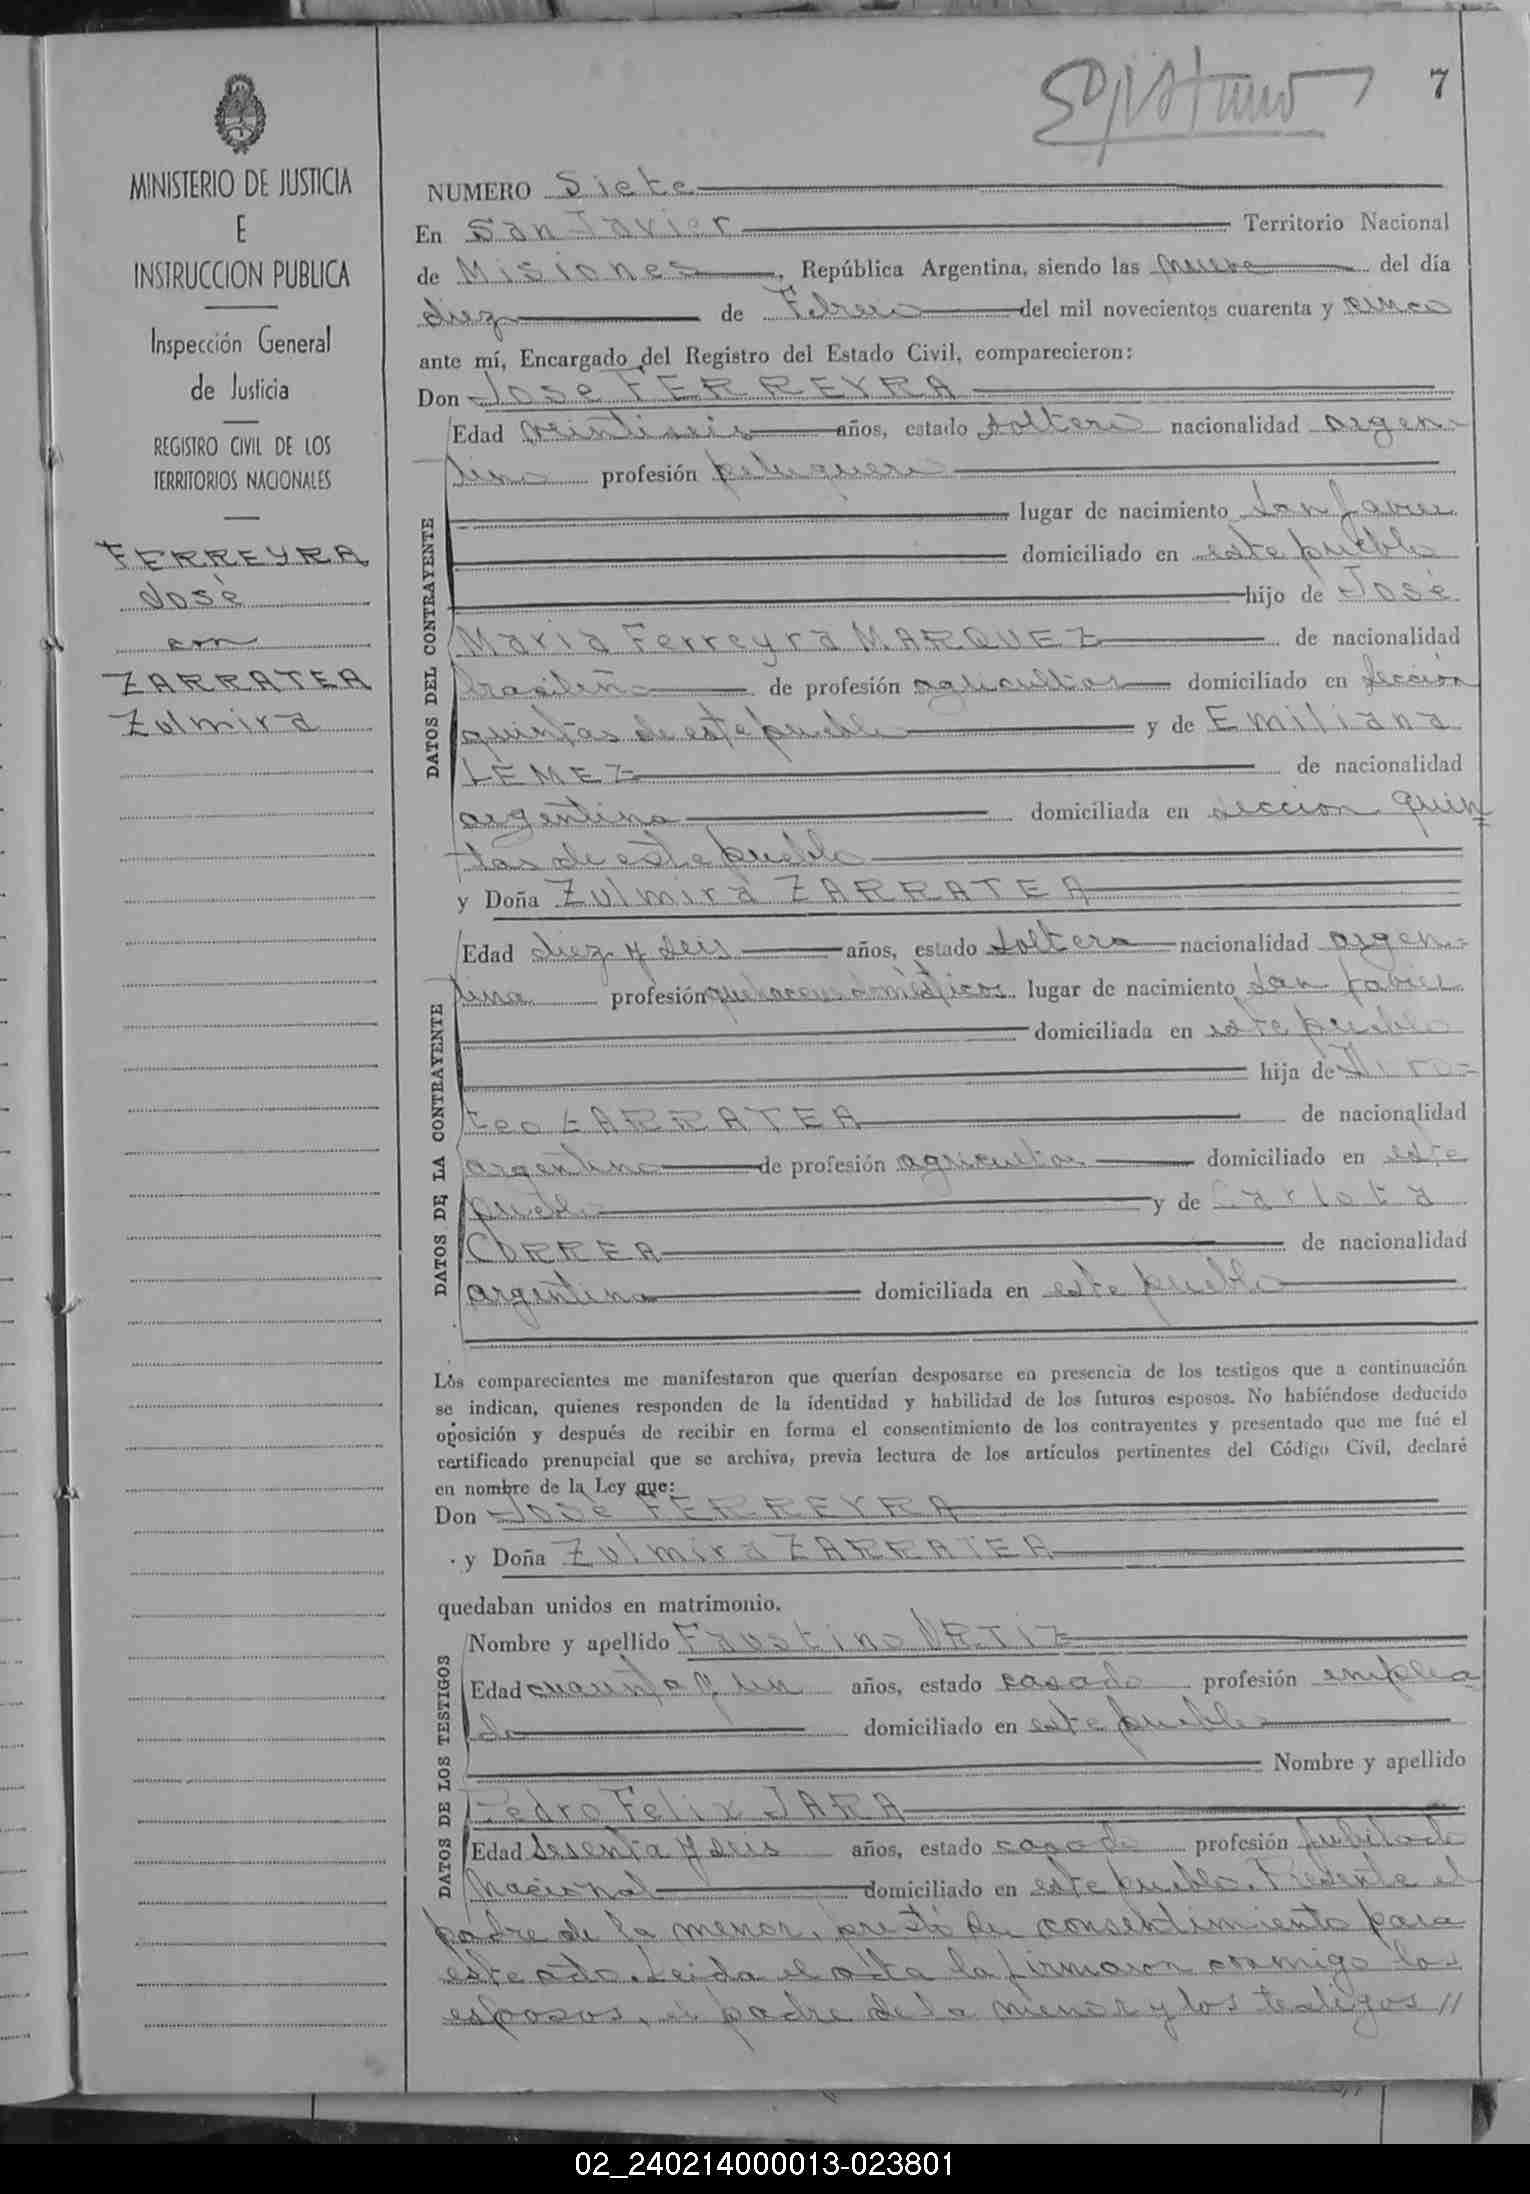 7
MINISTERIO DE JUSTICIA
E
INSTRUCCION PUBLICA
Inspección General
de Justicia
REGISTRO CIVIL DE LOS
TERRITORIOS NACIONALES
FERREYRA
José
con
ZARRATEA
Zulmira
NUMERO Siete
En San Javier Territorio Nacional
de Misiones, República Argentina, siendo las nueve del día
diez de Febrero del mil novecientos cuarenta y cinco
ante mí, Encargado del Registro del Estado Civil, comparecieron:
Don José FERREYRA
DATOS DEL CONTRAYENTE
Edad veintiseis años, estado soltero nacionalidad argen-
tino profesión peluquero
lugar de nacimiento San Javier
domiciliado en este pueblo
hijo de José
Maria Ferreyra MARQUEZ de nacionalidad
brasileña de profesión agricultor domiciliado en sección
quintas de este pueblo y de Emiliana
LEMEZ de nacionalidad
argentina domiciliada en seccion quin
tas de este pueblo
y Doña Zulmira ZARRATEA
DATOS DE LA CONTRAYENTE
Edad diez y seis años, estado soltera nacionalidad argen-
tina profesión quehaceres domésticos lugar de nacimiento San Javier
domiciliada en este pueblo
hija de
teo ZARRATEA de nacionalidad
argentino de profesión agricultor domiciliado en este
pueblo y de Carlota
CORREA de nacionalidad
argentina domiciliada en este pueblo
Los comparecientes me manifestaron que querían desposarse en presencia de los testigos que a continuación
se indican, quienes responden de la identidad y habilidad de los futuros esposos. No habiéndose deducido
oposición y después de recibir en forma el consentimiento de los contrayentes y presentado que me fué el
certificado prenupcial que se archiva, previa lectura de los artículos pertinentes del Código Civil, declaré
en nombre de la Ley que:
Don José FERREYRA
y Doña Zulmira ZARRATEA
quedaban unidos en matrimonio.
DATOS DE LOS TESTIGOS
Nombre y apellido Faustino ORTIZ
Edad cuarenta y un años, estado casado profesión emplea
do domiciliado en este pueblo
Nombre y apellido
Pedro Felix JARA
Edad sesenta y seis años, estado casado profesión jubilado
Nacional domiciliado en este pueblo. Presente el
padre de la menor, prestó su consentimiento para
este acto. Leida el acta la firmaron conmigo los
esposos, el padre de la menor y los testigos //
02_240214000013-023801